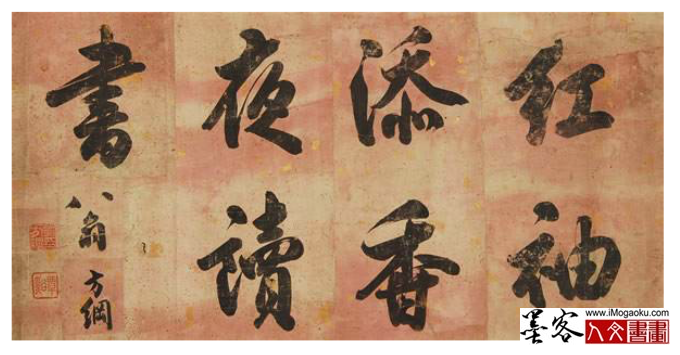 红袖
添香
夜讀
書
翁方綱
墨客
www.iMogaoku.com
人文書畫